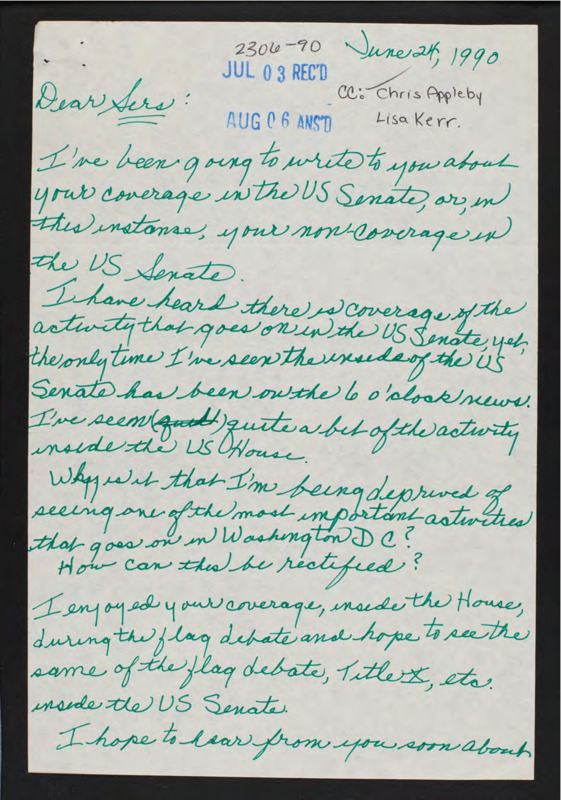 2306-90
June 24, 1990
JUL 03 REC'D
CC: Chris Appleby
Lisa Kerr.
Dear Sers:
AUG 06 ANS'D
I've been going to write to you about
your coverage in the US Senate, or, in
this instanse, your non-coverage in
the US Senate.
I have heard there is coverage of the
activity that goes on in the US Senate, yet,
the only time I've seen the inside of the US
Senate has been on the 6 o'clock news.
I've seem (quell) quite a bit of the activity
inside the US House.
Why is it that I'm being deprived of
seeing one of the most important activities
that goes on in Washington D C?
How can this be rectified?
I enjoyed your coverage, inside the House,
during the flag debate and hope to see the
same of the flag debate, Title X, etc.
inside the US Senate.
I hope to hear from you soon about